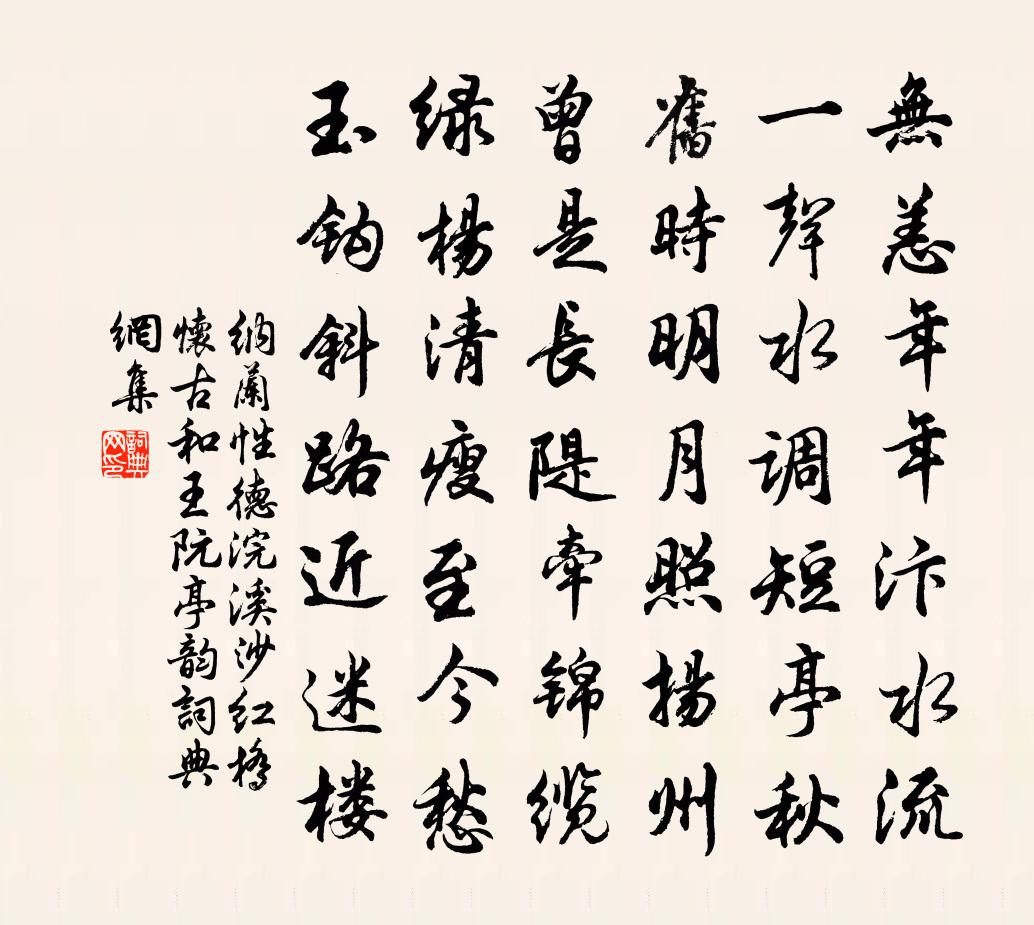 無恙年年汴水流
一聲水调短亭秋
舊時明月照揚州
曾是長隄牽锦缆
绿楊清瘦至今愁
玉钩斜路近迷楼
纳蘭性德浣溪沙红橋
懷古和王阮亭韵詞典
網集
詞典网印